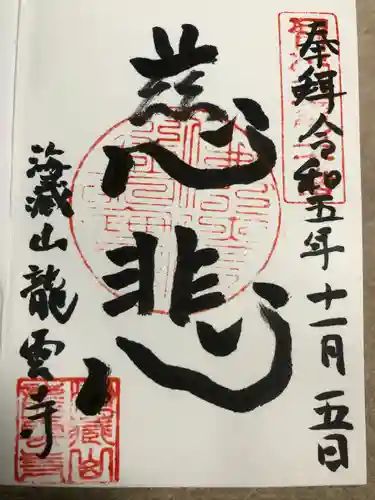 奉拝 令和五年十一月五日
慈悲
海蔵山龍雲寺